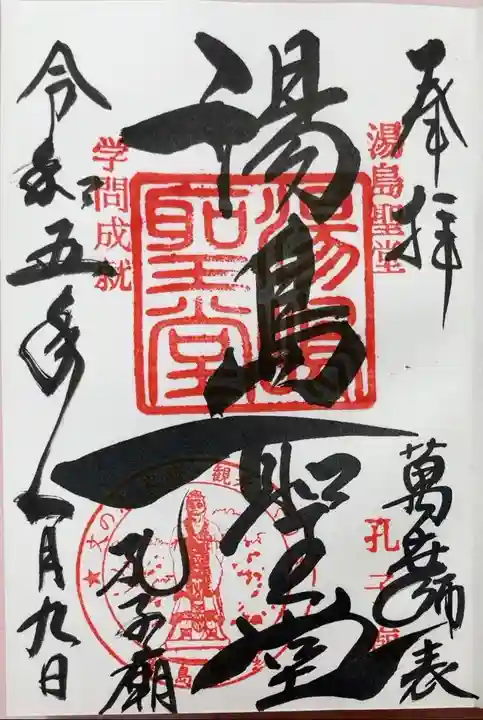 奉拝
湯島聖堂
萬世師表
孔子
湯島聖堂
湯島聖堂
孔子廟
学問成就
令和五年八月九日